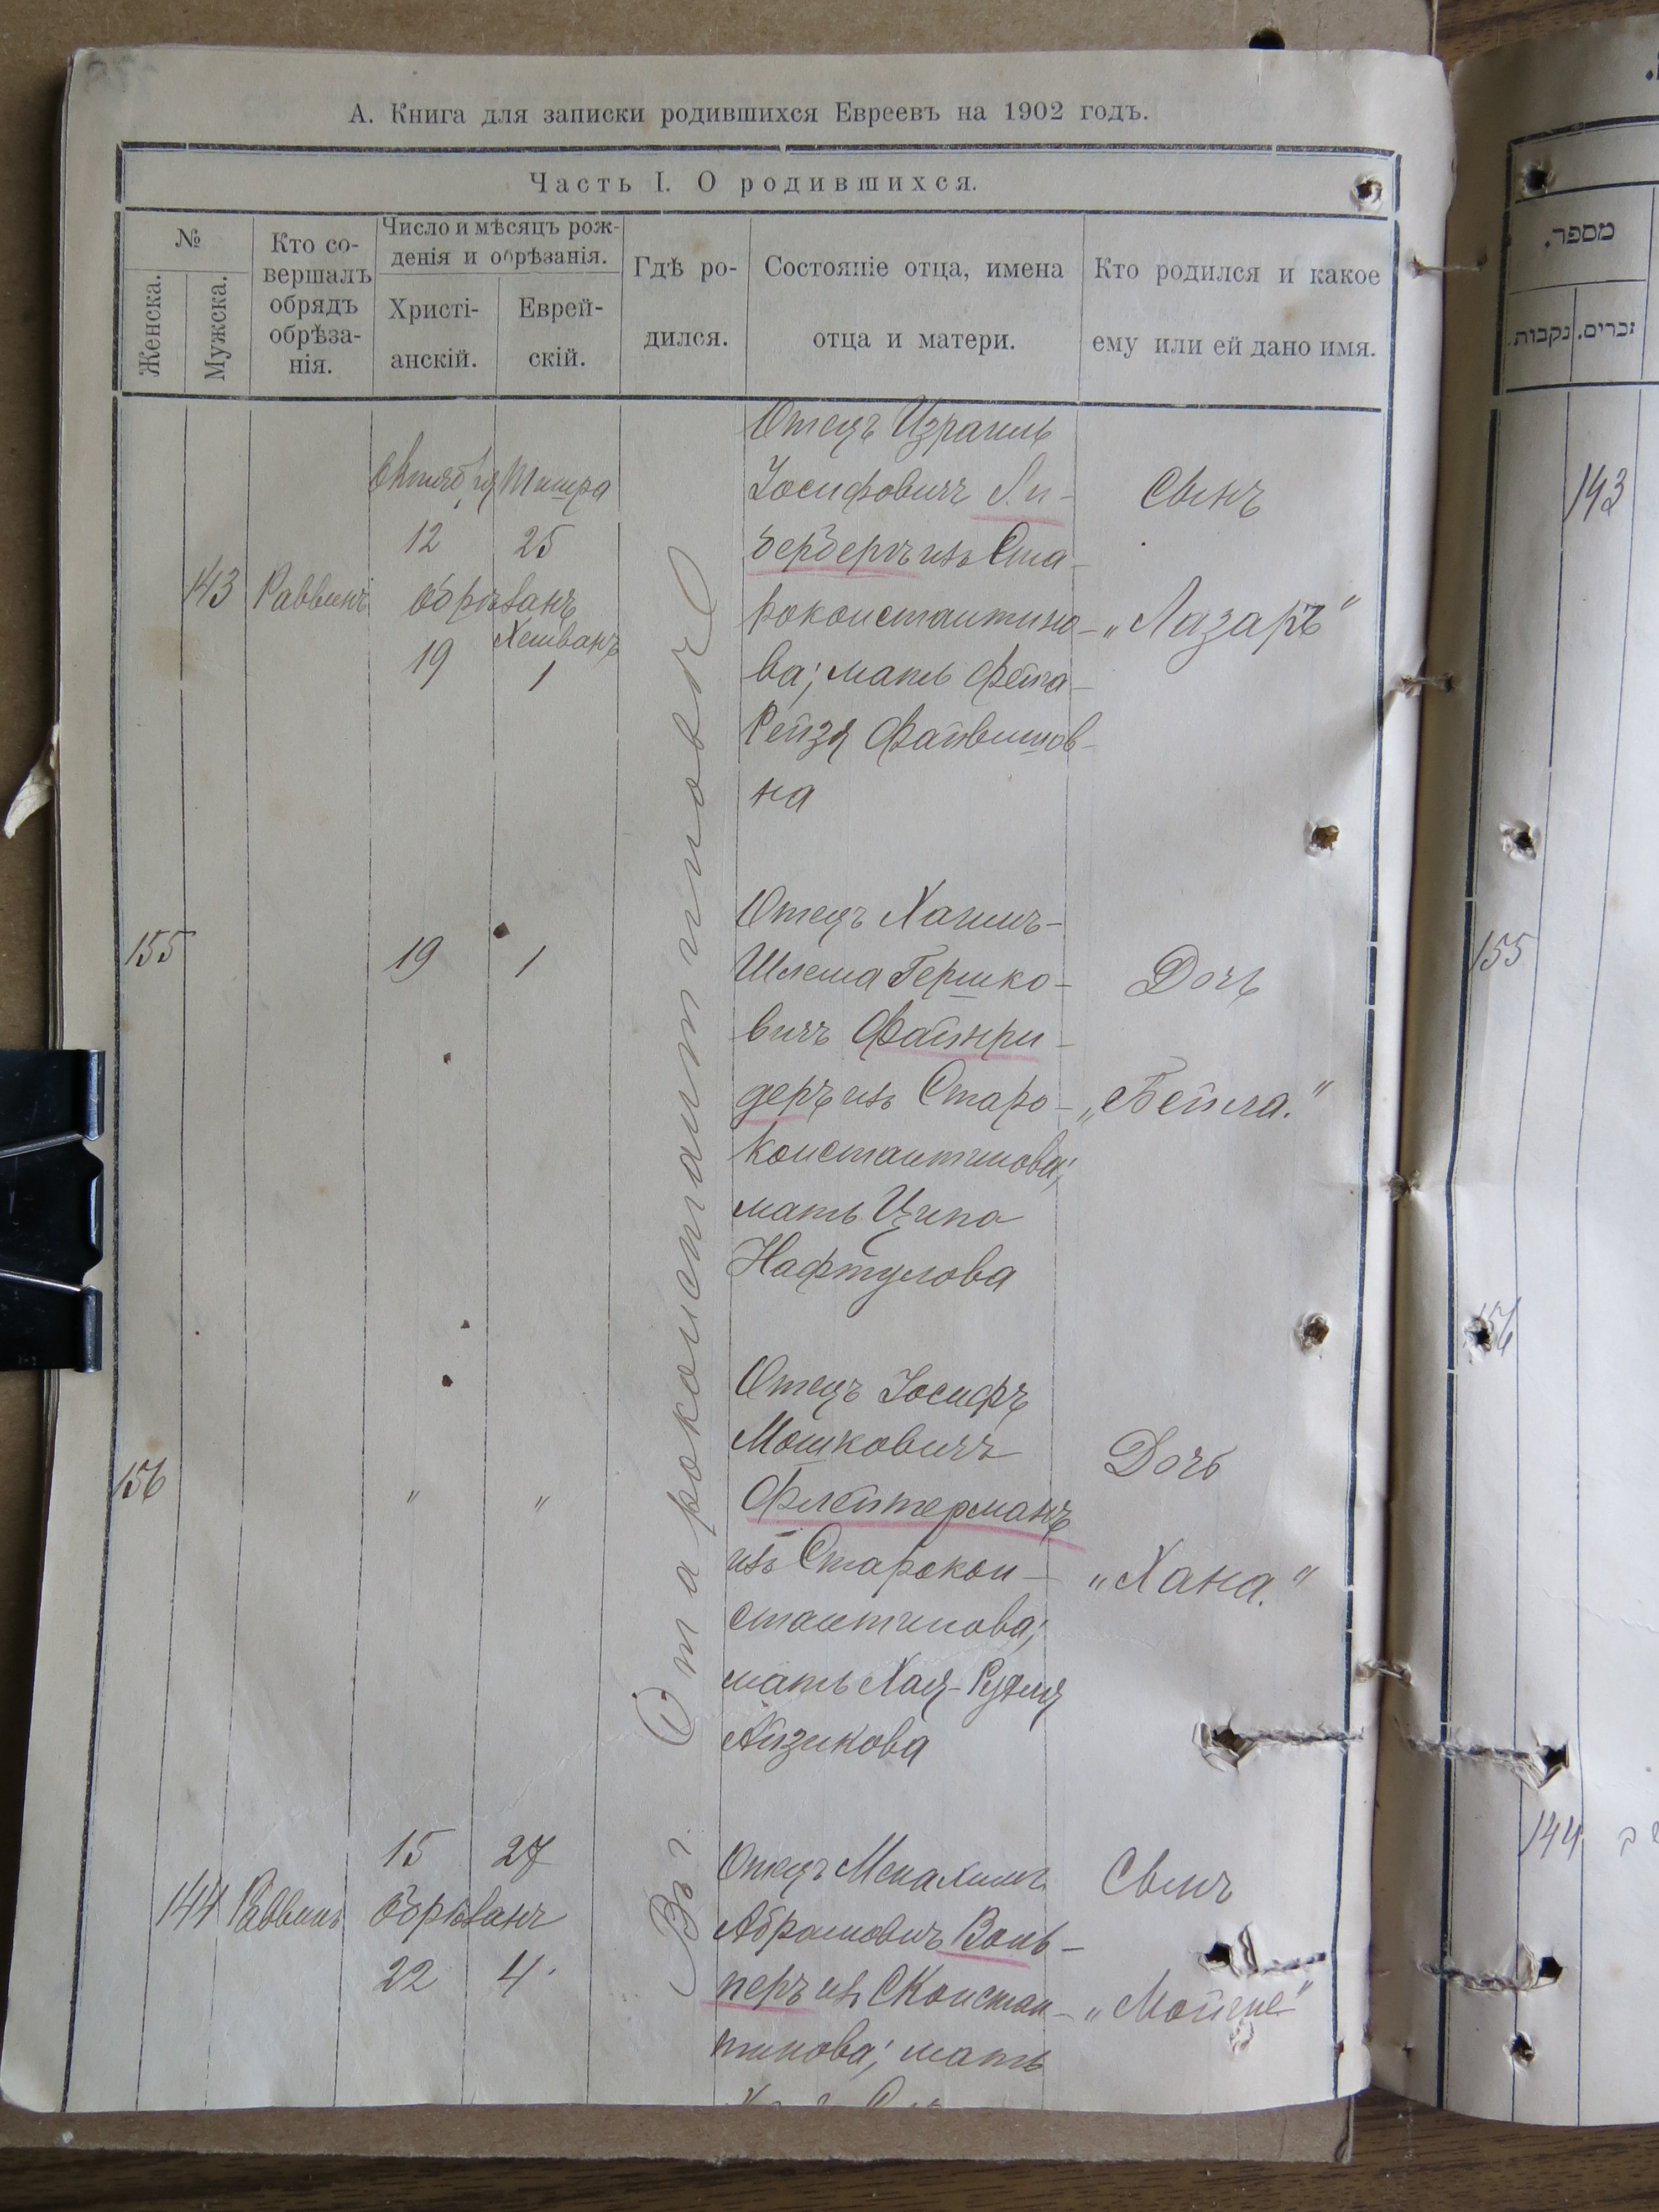 А. Книга для записки родившихся Евреевъ на 1902 годъ.
Часть I. О родившихся.
№
Женска.
Мужска.
Кто со-
вершалъ
обрядъ
обрѣза-
нія.
Число и мѣсяцъ рож-
денія и обрѣзанія.
Христі-
анскій.
Еврей-
скій.
Гдѣ ро-
дился.
Состояніе отца, имена
отца и матери.
Кто родился и какое
ему или ей дано имя.
Въ г. Староконстантиновѣ
143 Раввинъ
Октября Тишра
12 25
обрѣзанъ
Хешванъ
19 1
Отецъ Израиль
Іосифовичъ Ли-
берберъ изъ Ста-
роконстантино-
ва; мать Фейга-
Рейзя Файвишов-
на
Сынъ
„Лазаръ"
155
19 1
Отецъ Хаимъ-
Шлема Гершко-
вичъ Файнри-
деръ изъ Старо-
константинова;
мать Ципа
Нафтулова
Дочь
„Бейла."
156
" "
Отецъ Іосифъ
Мошковичъ
Флейтерманъ
изъ Старокон-
стантинова;
мать Хая-Рухля
Айзикова
Дочь
„Хана."
144 Раввинъ
15 27
обрѣзанъ
22 4.
Отецъ Менахимъ
Абрамовичъ Воль-
перъ изъ СКонстан-
тинова; мать
Сынъ
„Мойше"
מספר.
נקבות.
זכרים.
143
155
156
144